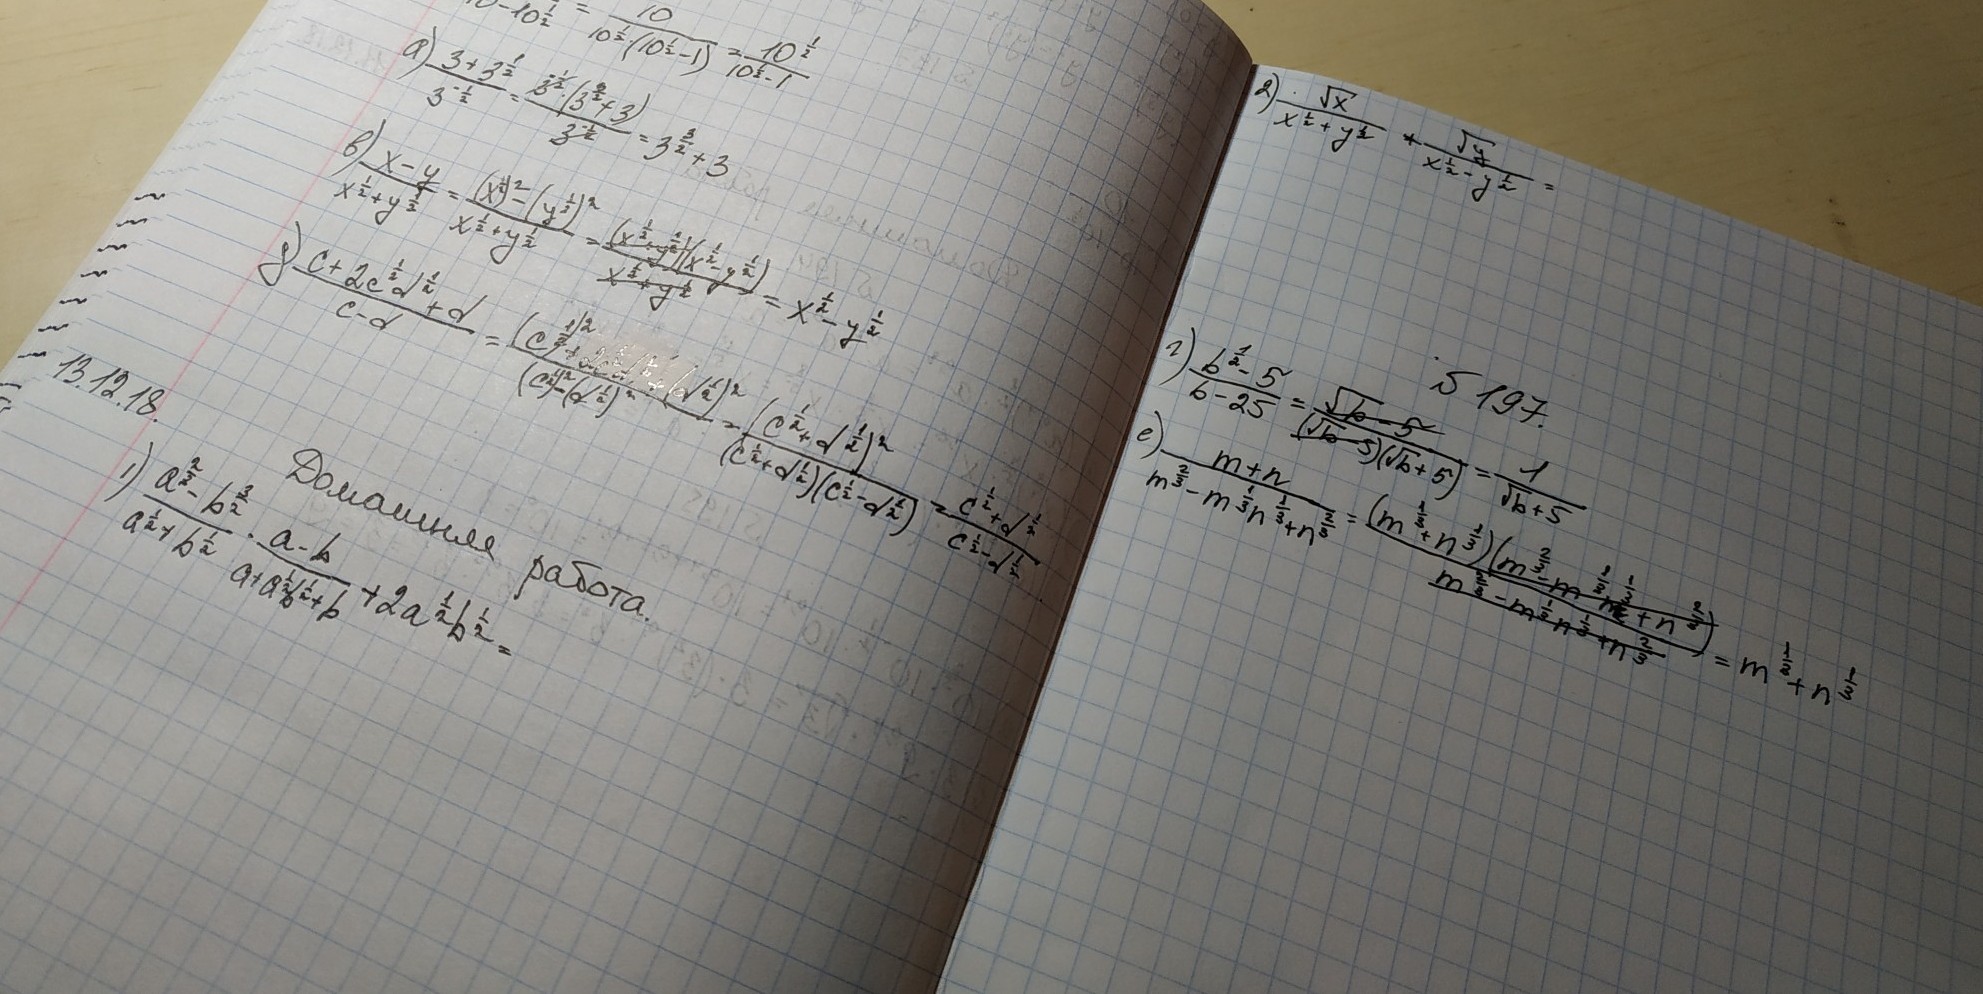 10-10^{1/2} = 10/(10^{1/2}·(10^{1/2}-1)) = 10^{1/2}/(10^{1/2}-1)
а) (3+3^{1/2})/3^{-1/2} = 3^{-1/2}·(3^{3/2}+3)/3^{-1/2} = 3^{3/2}+3
в) (x-y)/(x^{1/2}+y^{1/2}) = ((x^{1/2})^2-(y^{1/2})^2)/(x^{1/2}+y^{1/2}) = (x^{1/2}+y^{1/2})(x^{1/2}-y^{1/2})/(x^{1/2}+y^{1/2}) = x^{1/2}-y^{1/2}
д) (c+2c^{1/2}d^{1/2}+d)/(c-d) = ((c^{1/2})^2+2c^{1/2}d^{1/2}+(d^{1/2})^2)/((c^{1/2})^2-(d^{1/2})^2) = (c^{1/2}+d^{1/2})^2/((c^{1/2}+d^{1/2})(c^{1/2}-d^{1/2})) = (c^{1/2}+d^{1/2})/(c^{1/2}-d^{1/2})
13.12.18.
Домашняя работа.
1) (a^{3/2}-b^{3/2})/(a^{1/2}+b^{1/2}) · (a-b)/(a+a^{1/2}b^{1/2}+b) + 2a^{1/2}b^{1/2} =
2) √x/(x^{1/2}+y^{1/2}) + √y/(x^{1/2}-y^{1/2}) =
5 197.
г) (b^{1/2}-5)/(b-25) = (√b-5)/((√b-5)(√b+5)) = 1/(√b+5)
е) (m+n)/(m^{2/3}-m^{1/3}n^{1/3}+n^{2/3}) = (m^{1/3}+n^{1/3})(m^{2/3}-m^{1/3}n^{1/3}+n^{2/3})/(m^{2/3}-m^{1/3}n^{1/3}+n^{2/3}) = m^{1/3}+n^{1/3}